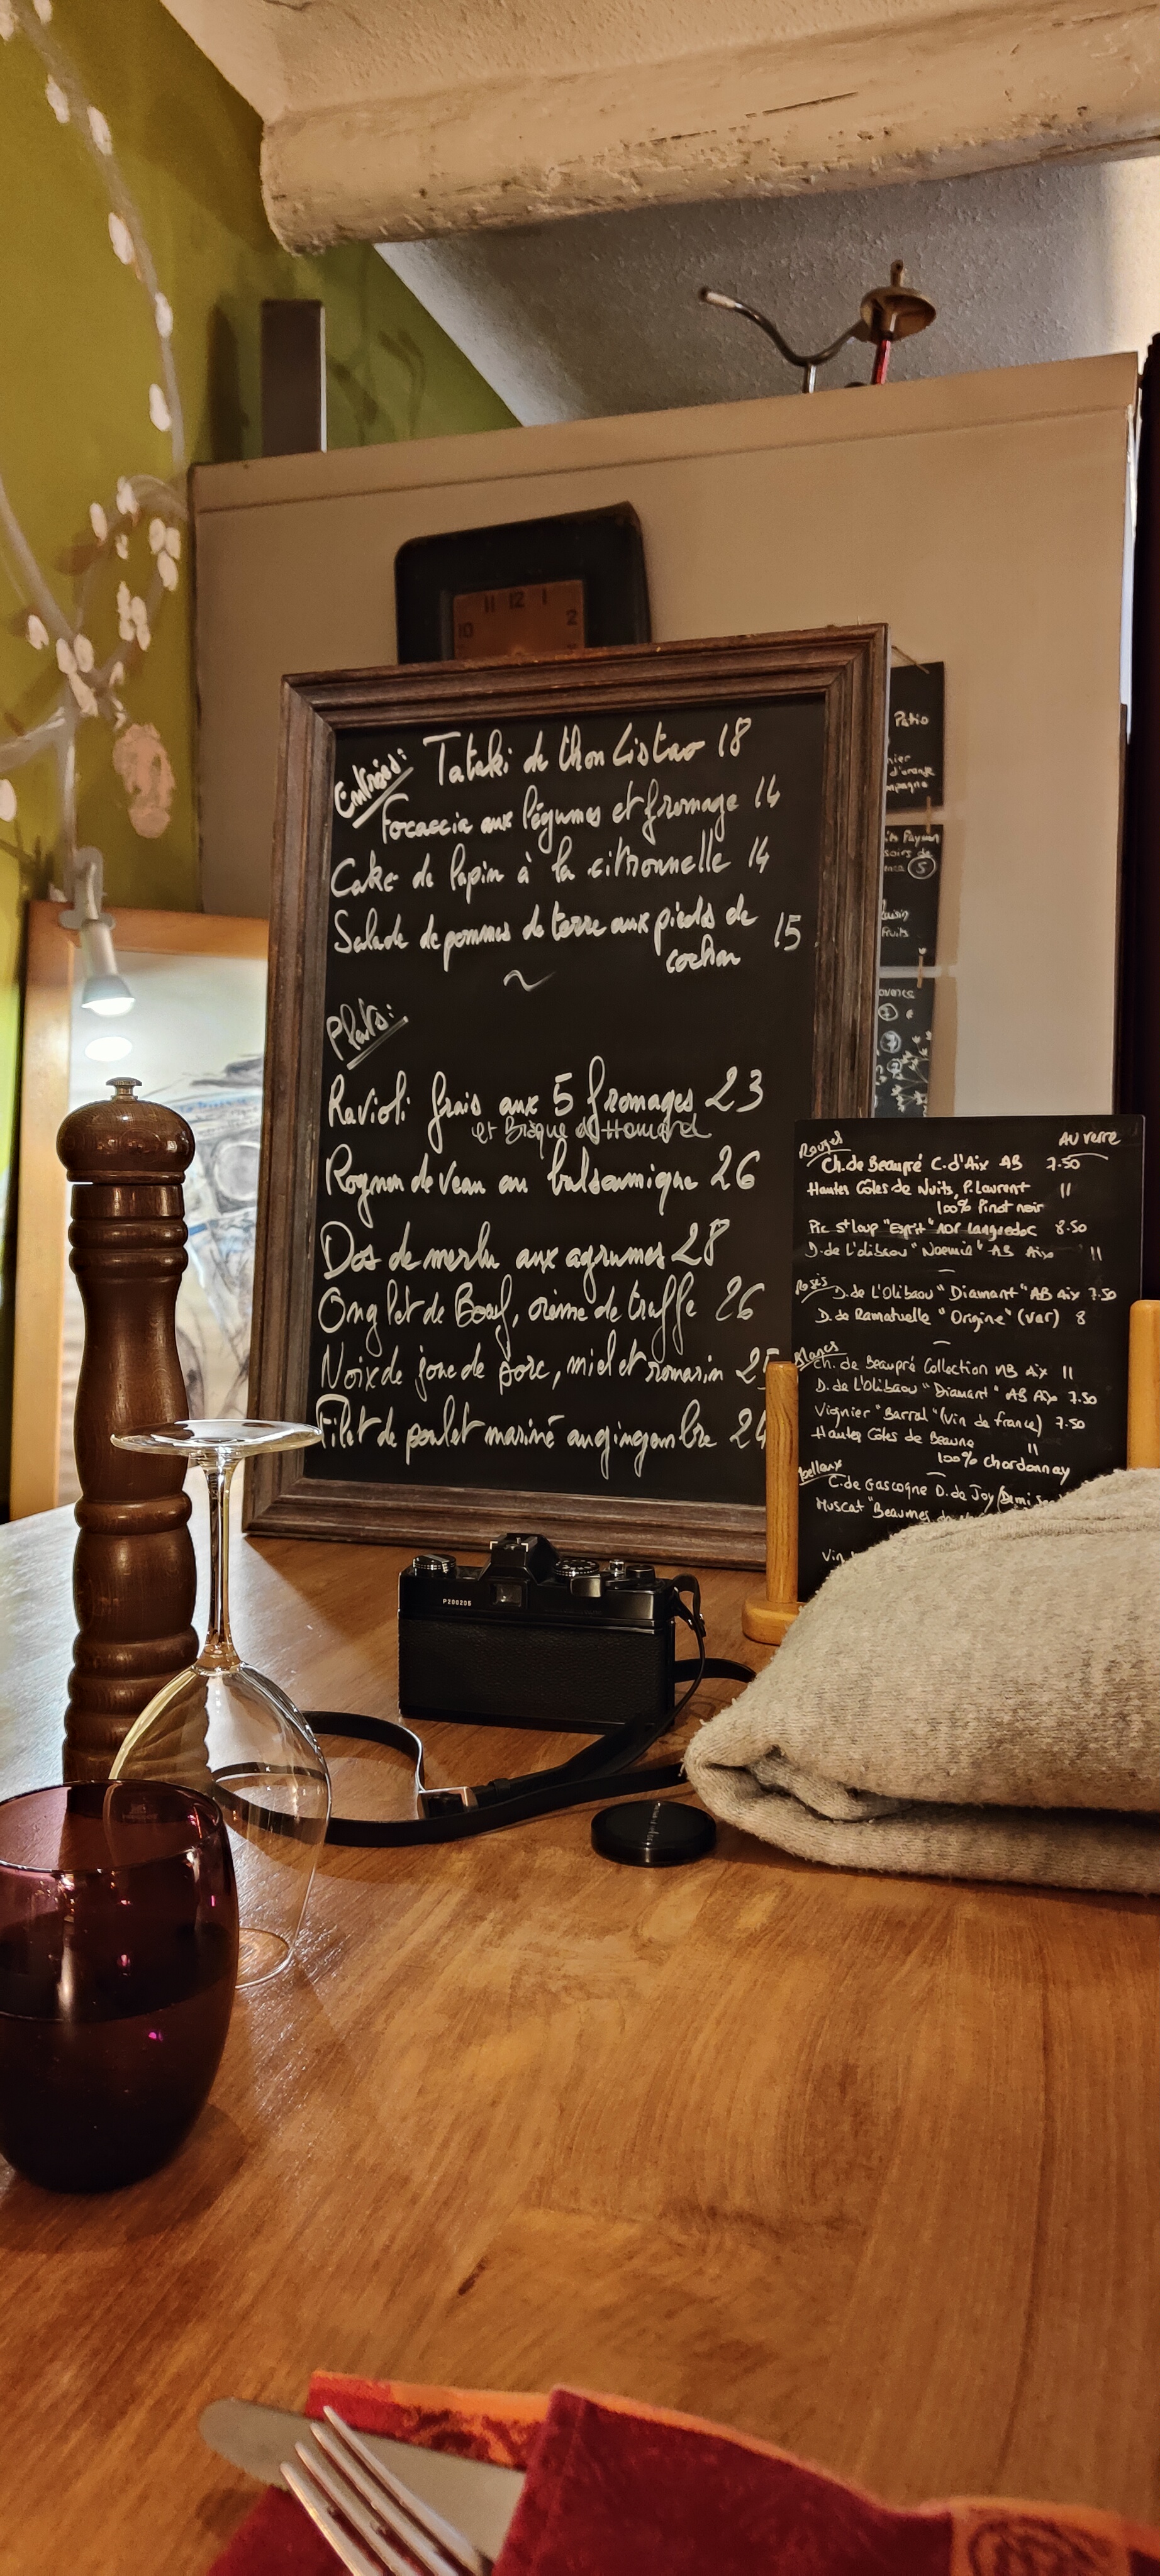 11 12 1
10 2
Entrées: Tataki de thon Listao 18
Focaccia aux légumes et fromage 14
Cake de lapin à la citronnelle 14
Salade de pommes de terre aux pieds de
cochon 15
~
Plats:
Ravioli frais aux 5 fromages 23
et Bisque d'Homard
Rognon de veau au balsamique 26
Dos de merlu aux agrumes 28
Onglet de Bœuf, crème de truffe 26
Noix de joue de porc, miel et romarin 25
Filet de poulet mariné au gingembre 24
Patio
nier
d'orange
mpagne
its Paysan
soirs de
5
fruits
ovence
7 €
Rouges Au verre
Ch. de Beaupré C. d'Aix AB 7.50
Hautes Côtes de Nuits, P. Laurent 11
100% Pinot noir
Pic St Loup "Esprit" AOP Languedoc 8.50
D. de L'Olibaou "Noemie" AB Aix 11
Rosés
D. de L'Olibaou "Diamant" AB Aix 7.50
D. de Ramatuelle "Origine" (Var) 8
Blancs
Ch. de Beaupré Collection AB Aix 11
D. de L'Olibaou "Diamant" AB Aix 7.50
Viognier "Barral" (Vin de france) 7.50
Hautes Côtes de Beaune 11
100% Chardonnay
Moelleux
C. de Gascogne D. de Joy (Demi Sec
Muscat "Beaumes de
Vin
P200206